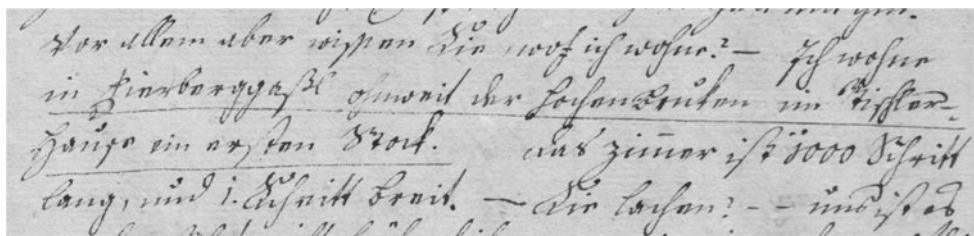 Vor allem aber wissen Sie wo ich wohne? – Ich wohne
in Fierberggaßl ohnweit der hochen Bruken im Tischler-
Hause im ersten Stock. das Zimmer ist 1000 Schritt
lang, und 1. Schritt breit. – Sie lachen? – – uns ist es